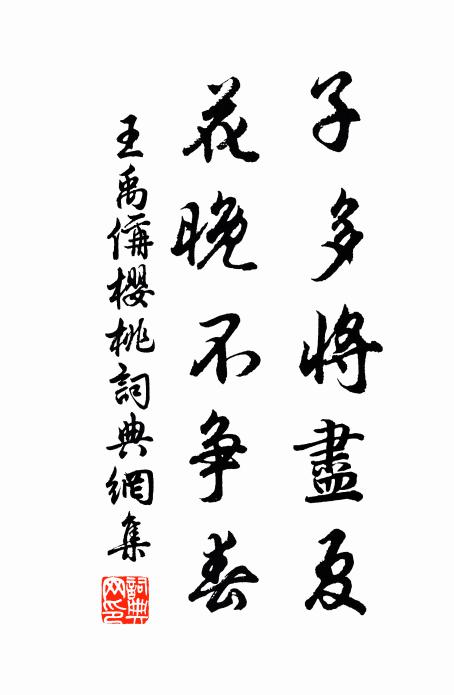 子多將盡夏
花晚不争春
王禹偁櫻桃詞典網集
詞典網印